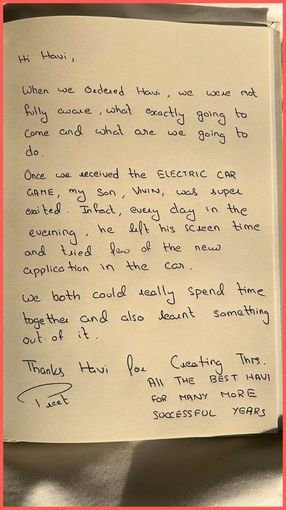 Hi Havi,
When we ordered Havi, we were not
fully aware, what exactly going to
come and what are we going to
do.
Once we received the ELECTRIC CAR
GAME, my son, VIVIN, was super
exited. Infact, every day in the
everning, he left his screen time
and tried few of the new
application in the car.
we both could really spend time
together and also learnt something
out of it.
Thanks Havi for Creating This.
ALL THE BEST HAVI
FOR MANY MORE
SUCCESSFUL YEARS